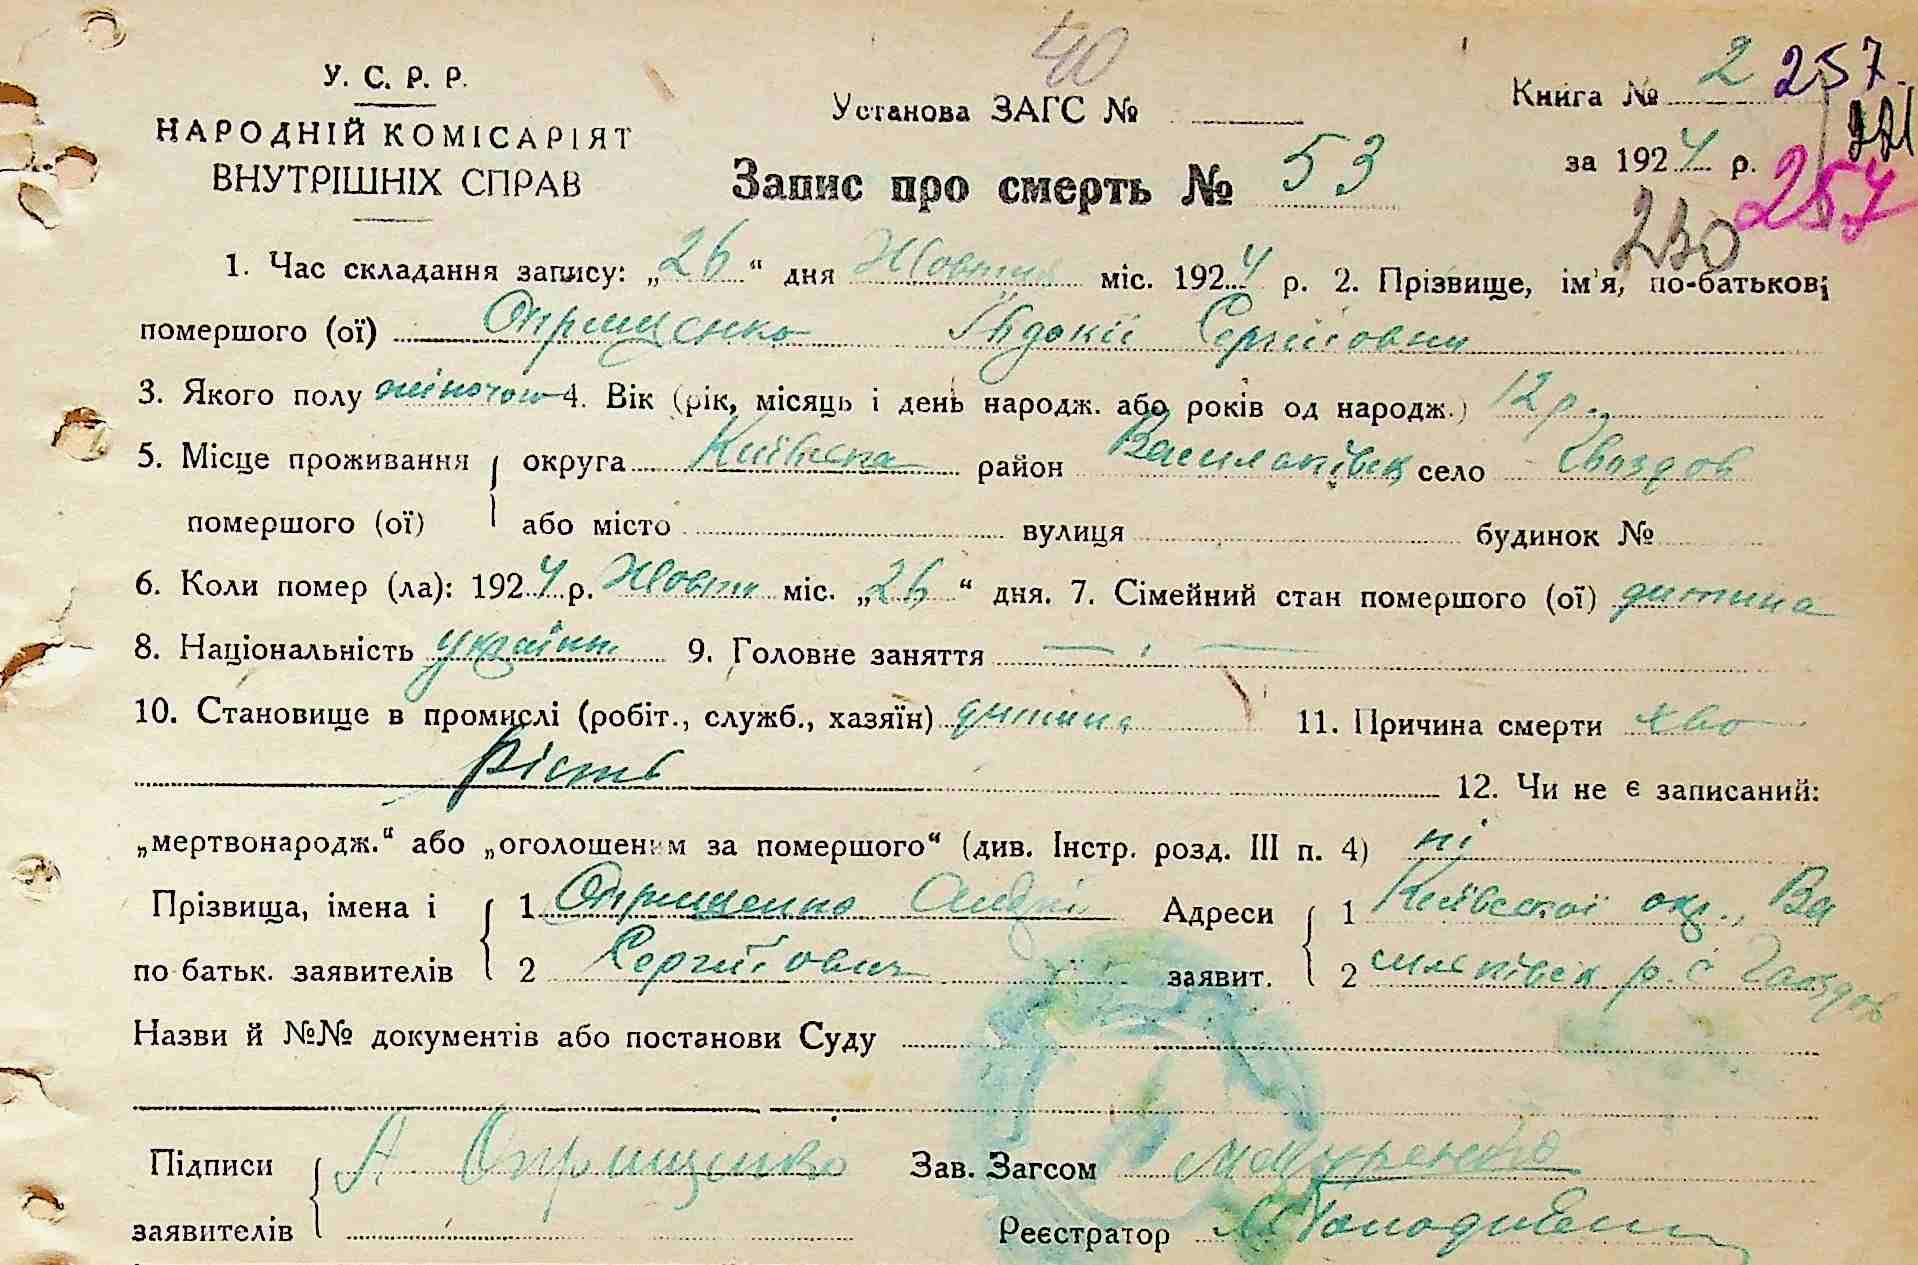 40
У. С. Р. Р.
НАРОДНІЙ КОМІСАРІЯТ
ВНУТРІШНІХ СПРАВ
Установа ЗАГС №
Книга № 2 257.
221
за 1924 р. 257
230
Запис про смерть № 53
1. Час складання запису: „26“ дня Жовтня міс. 1924 р. 2. Прізвище, ім'я, по-батькові
помершого (ої) Оприщенко Євдокії Сергійовни
3. Якого полу жіночого 4. Вік (рік, місяць і день народж. або років од народж.) 12 р.
5. Місце проживання округа Київська район Васильківськ село Гвоздов
помершого (ої) або місто вулиця будинок №
6. Коли помер (ла): 1924 р. Жовтня міс. „26“ дня. 7. Сімейний стан помершого (ої) дитина
8. Національність україн. 9. Головне заняття —
10. Становище в промислі (робіт., служб., хазяїн) дитина 11. Причина смерти хво
рість 12. Чи не є записаний:
„мертвонародж.“ або „оголошеним за помершого“ (див. Інстр. розд. III п. 4) ні
Прізвища, імена і 1 Оприщенко Андрій Адреси 1 Київської окр., Ва
по батьк. заявителів 2 Сергійович заявит. 2 сильківськ р. с Гвоздов
Назви й №№ документів або постанови Суду
Підписи А Оприщенко Зав. Загсом
заявителів Реєстратор